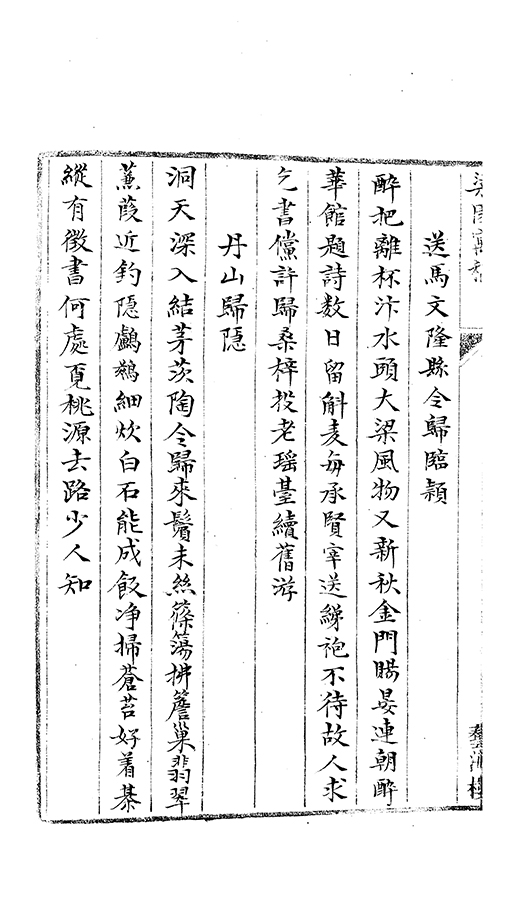 送馬文隆縣令歸臨潁
醉把離杯汴水頭大梁風物又新秋金門賜晏連朝醉
華館題詩数日留斛麦每承賢宰送綈袍不待故人求
乞書儻許歸桑梓投老瑶臺續舊游
丹山歸隱
洞天深入結茅茨陶令歸來鬢未絲篠簜拂簷巢翡翠
蒹葭近釣隱鸕鷀細炊白石能成飯净掃蒼苔好着棊
縱有徵書何處覔桃源去路少人知